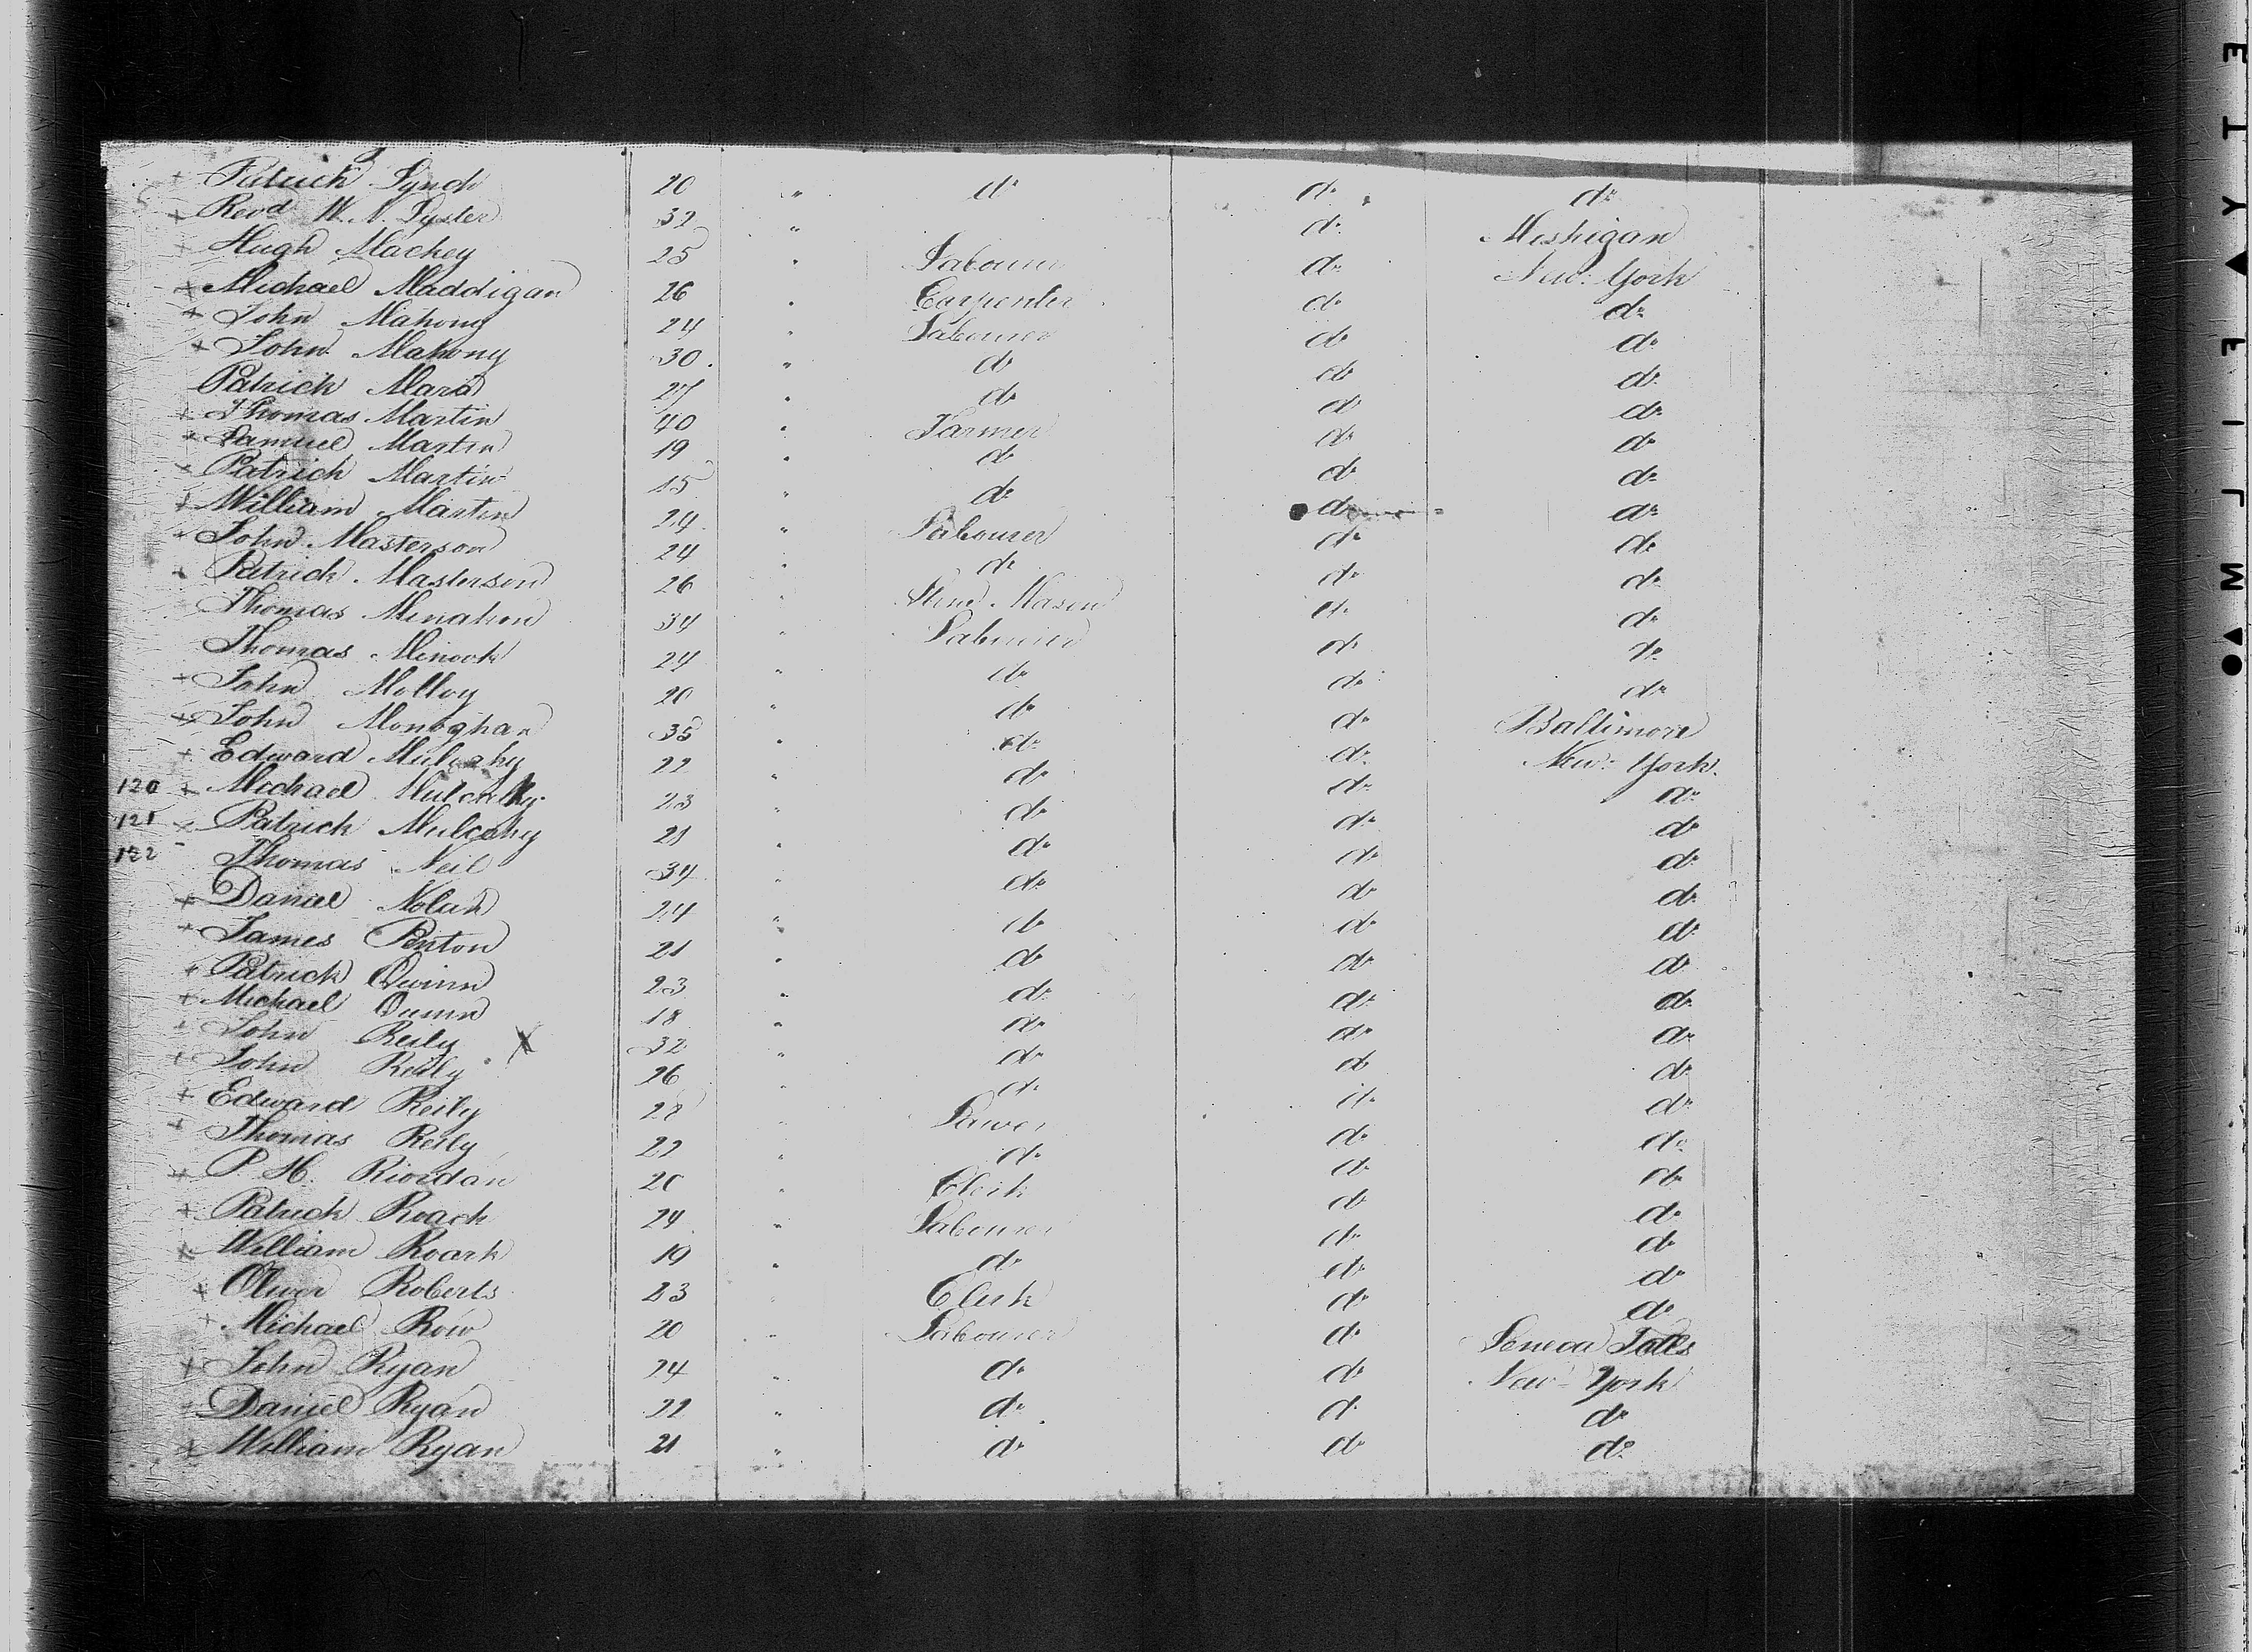 + Patrick Lynch 20 " do do do
+ Revd W. N. Lyster 32 " do Mishigan
+ Hugh Mackey 25 " Labourer do New York
+ Michael Maddigan 26 " Carpenter do do
+ John Mahony 24 " Labourer do do
+ John Mahony 30 " do do do
Patrick Mara 27 " do do do
+ Thomas Martin 40 " Farmer do do
+ Samuel Martin 19 " do do do
+ Patrick Martin 15 " do do do
+ William Martin 24 " Labourer do do
+ John Masterson 24 " do do do
+ Patrick Masterson 26 " Stone Mason do do
Thomas Menahon 34 " Labourer do do
Thomas Minook 24 " do do do
+ John Molloy 20 " do do do
+ John Monoghan 35 " do do Baltimore
+ Edward Mulcahy 22 " do do New York
120 + Michael Mulcalky 23 " do do do
121 + Patrick Mulcahy 21 " do do do
122 Thomas Neil 34 " do do do
+ Daniel Nolan 24 " do do do
+ James Penton 21 " do do do
+ Patrick Quinn 23 " do do do
+ Michael Quinn 18 " do do do
+ John Reily X 32 " do do do
+ John Reily 26 " do do do
+ Edward Reily 28 " Sawer do do
+ Thomas Reily 22 " do do do
+ P. H. Riordan 20 " Clerk do do
+ Patrick Roach 24 " Labourer do do
+ William Roark 19 " do do do
+ Oliver Roberts 23 " Clerk do do
+ Michael Row 20 " Labourer do Seneca Falls
+ John Ryan 24 " do do New York
Daniel Ryan 22 " do do do
+ William Ryan 21 " do do do